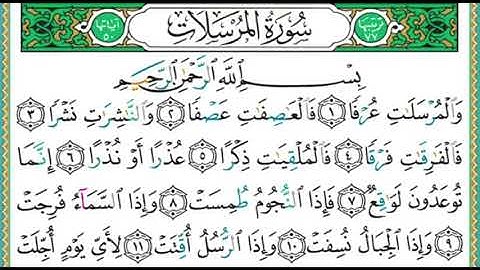 ترتيبها ٧٧ سورة المرسلات آياتها ٥٠
بِسْمِ اللَّهِ الرَّحْمَٰنِ الرَّحِيمِ
وَالْمُرْسَلَاتِ عُرْفًا ١ فَالْعَاصِفَاتِ عَصْفًا ٢ وَالنَّاشِرَاتِ نَشْرًا ٣
فَالْفَارِقَاتِ فَرْقًا ٤ فَالْمُلْقِيَاتِ ذِكْرًا ٥ عُذْرًا أَوْ نُذْرًا ٦ إِنَّمَا
تُوعَدُونَ لَوَاقِعٌ ٧ فَإِذَا النُّجُومُ طُمِسَتْ ٨ وَإِذَا السَّمَاءُ فُرِجَتْ
٩ وَإِذَا الْجِبَالُ نُسِفَتْ ١٠ وَإِذَا الرُّسُلُ أُقِّتَتْ ١١ لِأَيِّ يَوْمٍ أُجِّلَتْ